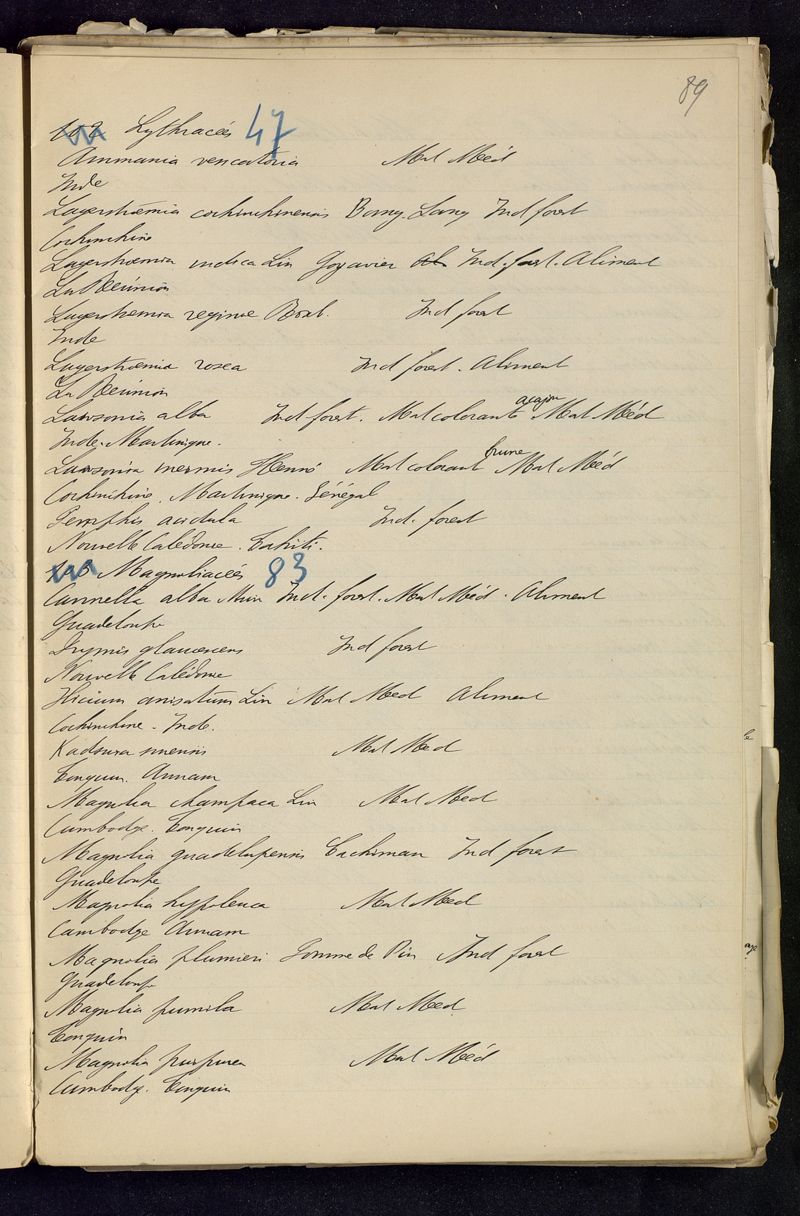 89
102 Lythracées 47
Ammania vescatoria Mat Méd
Inde
Lagerstræmia cochinchinensis Bang. Lang Ind forest
Cochinchine
Lagerstræmia indica Lin Goyavier Ind. forest. Aliment
La Réunion
Lagerstræmia reginæ Roxl. Ind forest
Inde
Lagerstræmia rosea Ind forest. Aliment
La Réunion
Lawsonia alba Ind forest. Mat colorante acajou Mat Méd
Inde. Martinique.
Lawsonia inermis Henné Mat colorant brune Mat Méd
Cochinchine. Martinique. Sénégal
Pemphis acidula Ind. forest
Nouvelle Calédonie. Tahiti.
103 Magnoliacées 83
Cannella alba Murr Ind. forest. Mat Méd. Aliment
Guadeloupe
Drymis glaucescens Ind forest
Nouvelle Calédonie
Illicium anisatum Lin Mat Med Aliment
Cochinchine. Inde.
Kadsura sinensis Mat Med
Tonquin. Annam
Magnolia champaca Lin Mat Med
Cambodge. Tonquin
Magnolia guadelupensis Cachiman Ind forest
Guadeloupe
Magnolia hypoleuca Mat Med
Cambodge Annam
Magnolia plumieri Pomme de Pin Ind forest
Guadeloupe
Magnolia pumila Mat Med
Tonquin
Magnolia purpurea Mat Méd
Cambodge. Tonquin